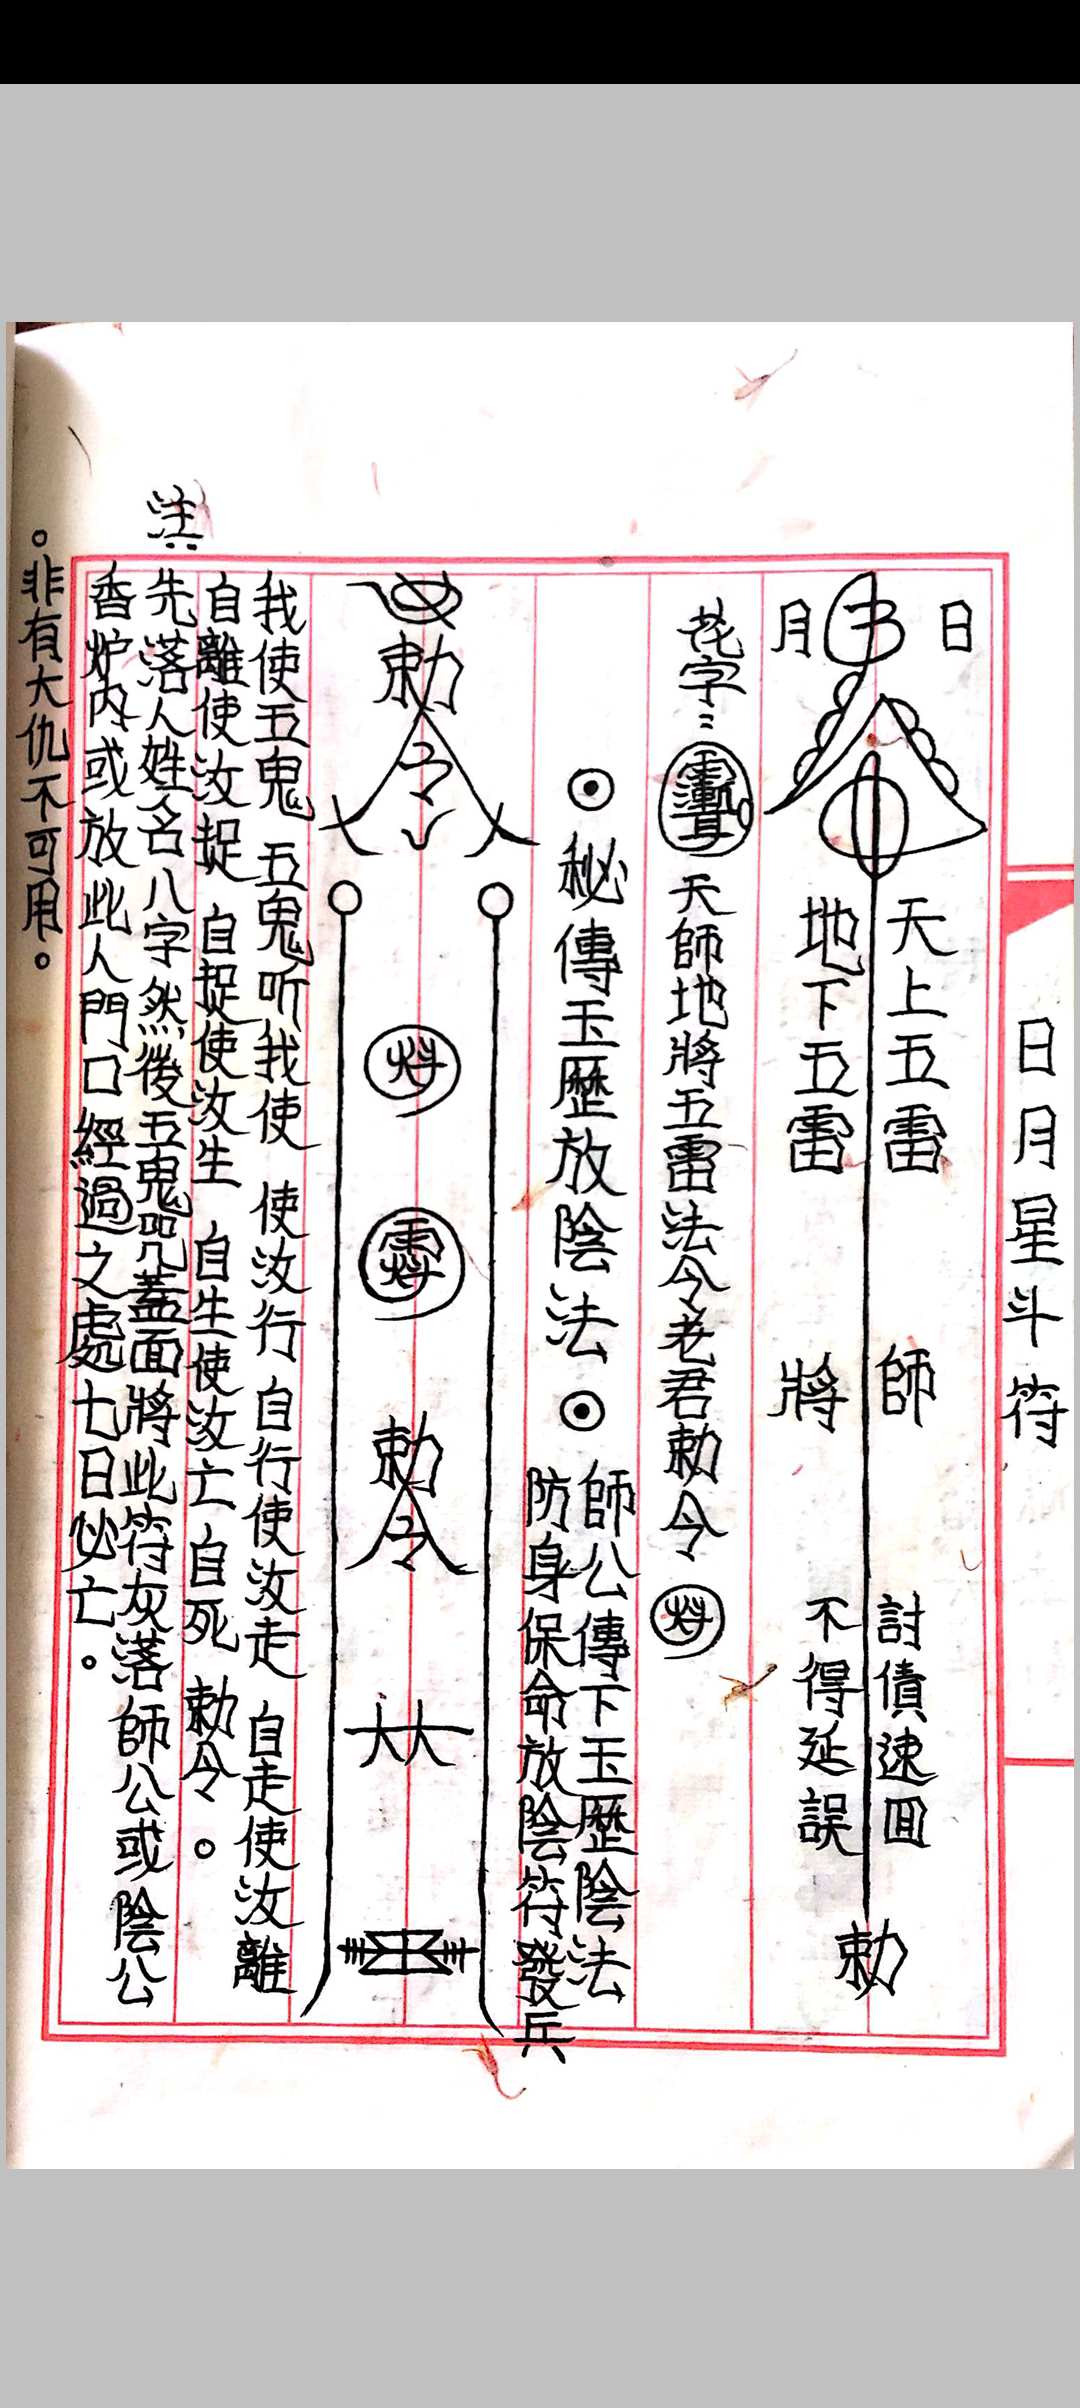 日月星斗符
日
月
天上五雷
地下五雷
師
將
討債速回
不得延誤
勅
花字:
天師地將五雷法令老君勅令
⊙秘傳玉歷放陰法⊙
師公傳下玉歷陰法
防身保命放陰符發兵
勅令
勅令
我使五鬼 五鬼听我使 使汝行 自行使汝走 自走使汝離
自離使汝捉 自捉使汝生 自生使汝亡 自死 勅令。
註:
先落人姓名八字然後五鬼咒蓋面將此符灰落師公或陰公
香炉内或放此人門口經過之處七日必亡。
。非有大仇不可用。